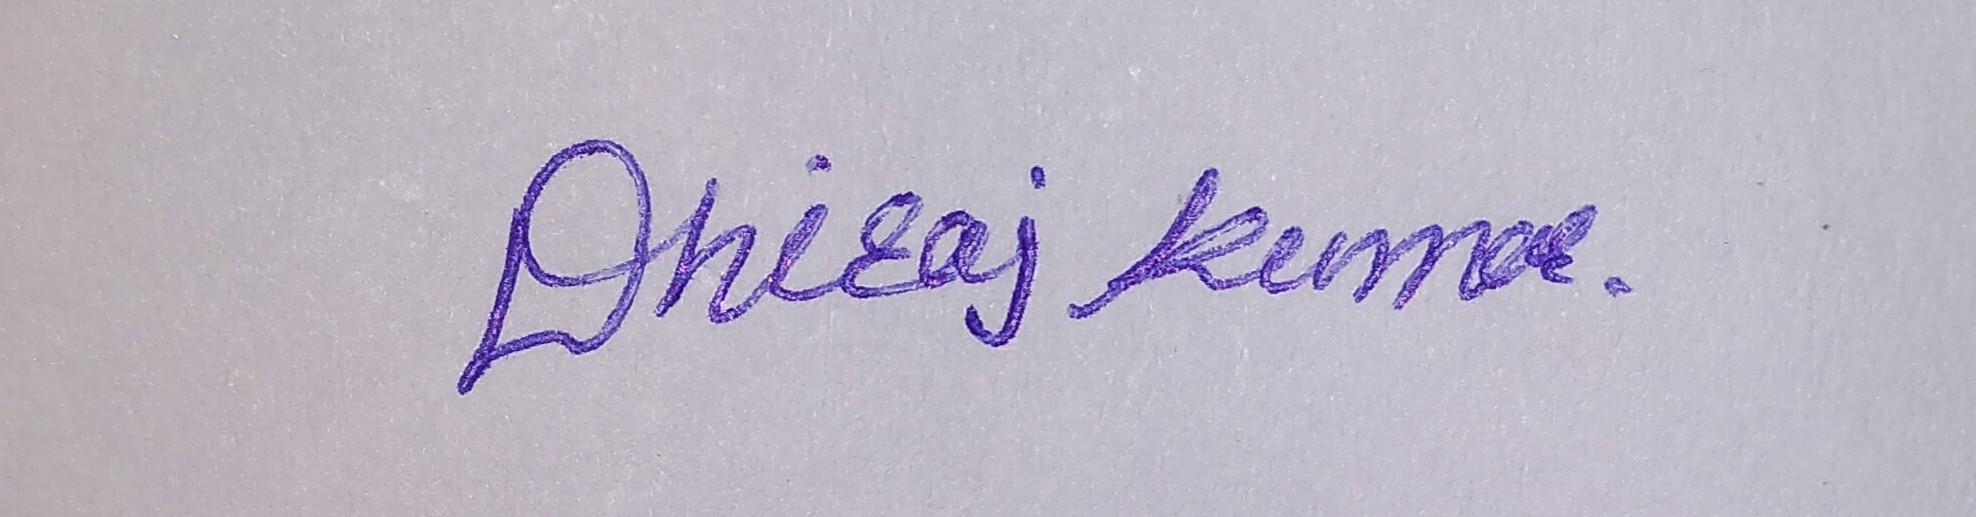 Dhiraj kumar.